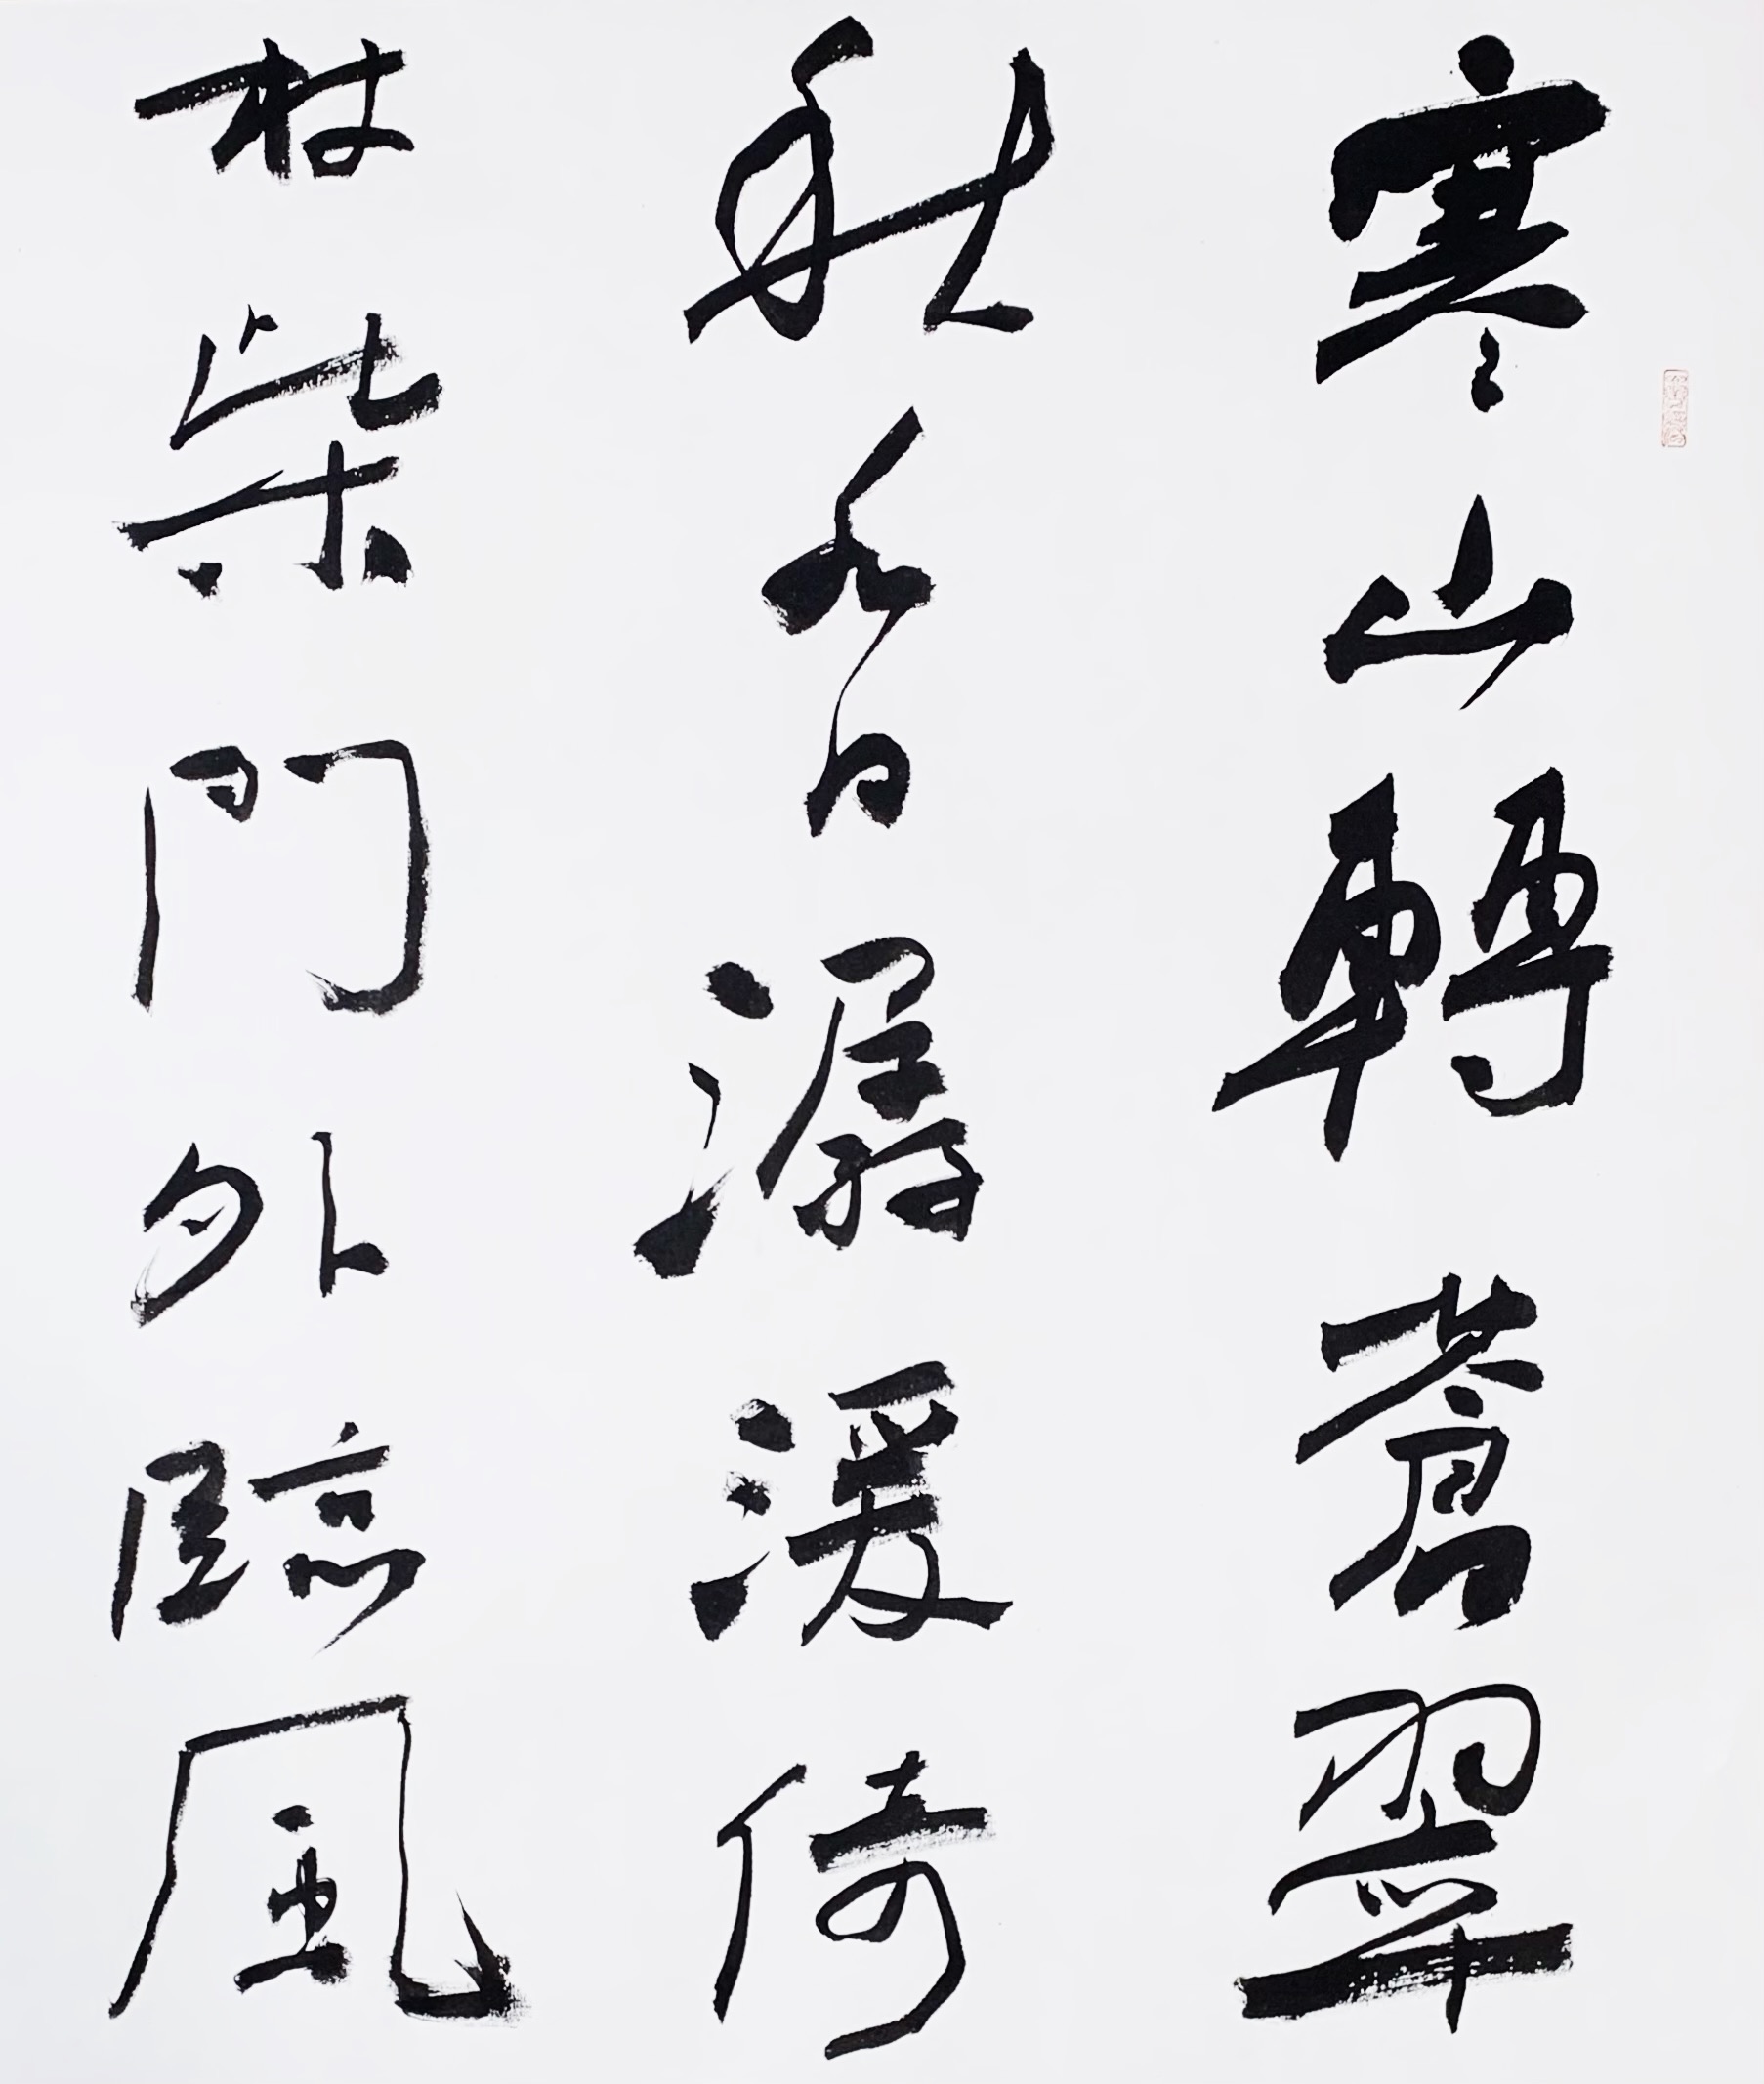 寒山轉蒼翠
秋水日潺湲倚
杖柴門外臨風